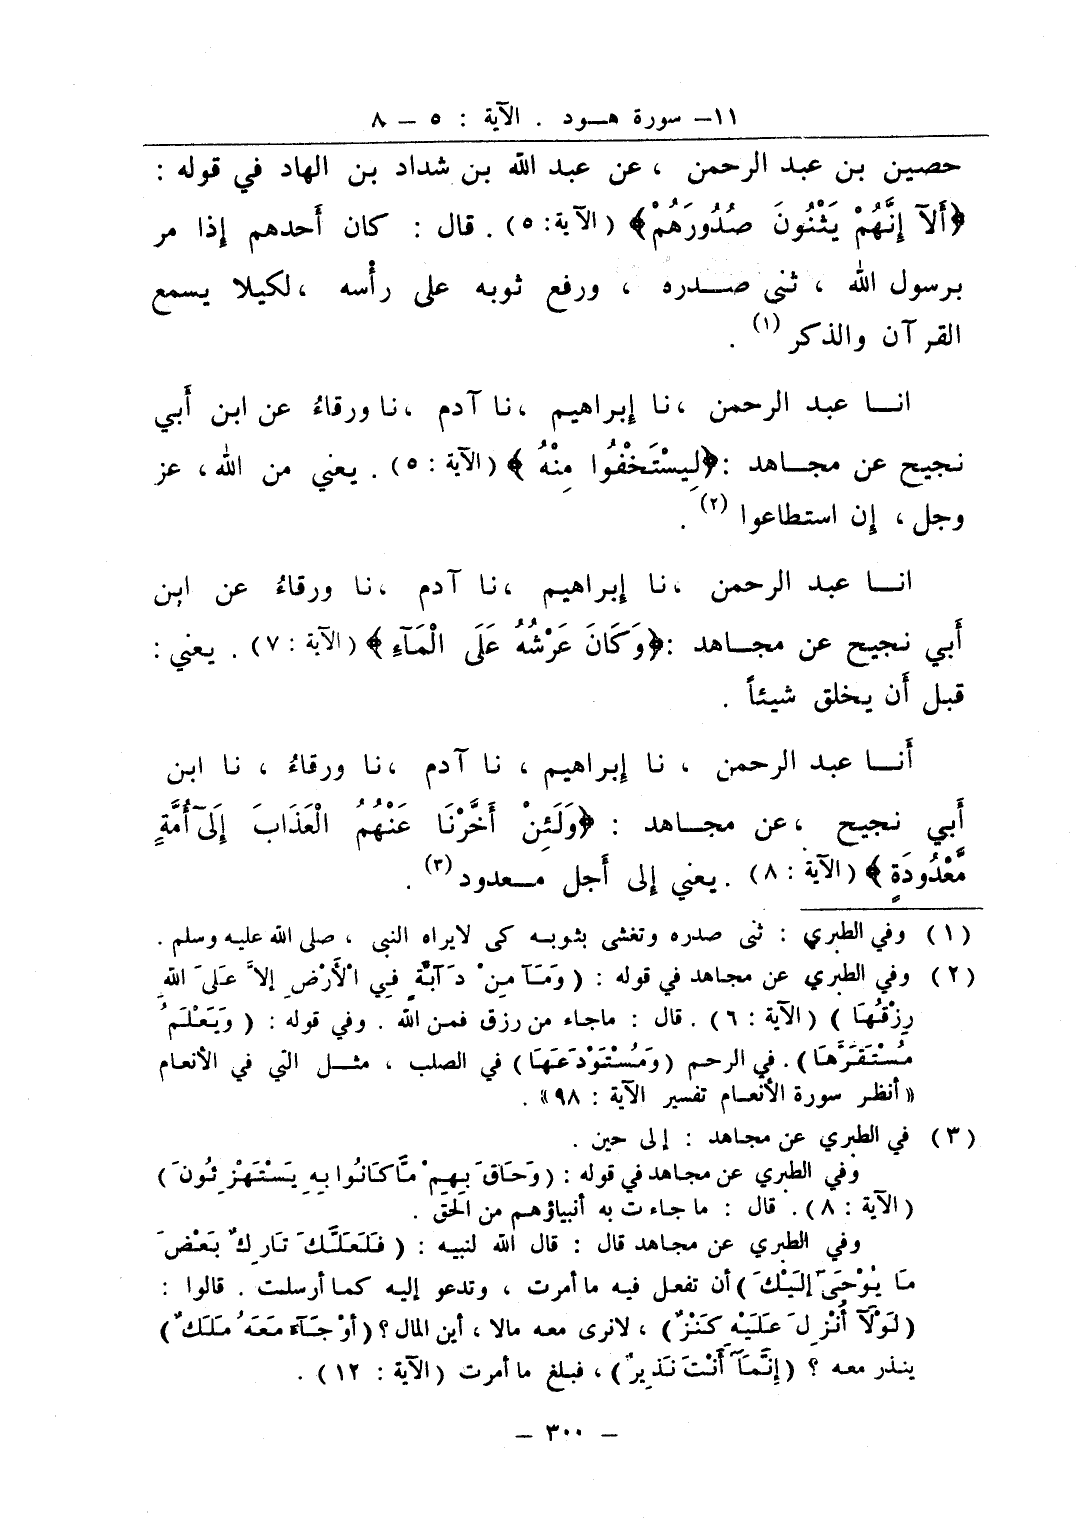 ١١- سورة هـود . الآية : ٥ - ٨
حصين بن عبد الرحمن ، عن عبد الله بن شداد بن الهاد في قوله :
﴿أَلَآ إِنَّهُمْ يَثْنُونَ صُدُورَهُمْ﴾ (الآية: ٥) . قال : كان أحدهم إذا مر
برسول الله ، ثنى صـدره ، ورفع ثوبه على رأسه ،لكيلا يسمع
القرآن والذكر (١) .
انـا عبد الرحمن ،نا إبراهيم ،نا آدم ،نا ورقاءُ عن ابن أبي
نجيح عن مجـاهد :﴿لِيَسْتَخْفُوا مِنْهُ﴾ (الآية : ٥) . يعني من الله، عز
وجل، إن استطاعوا (٢) .
انـا عبد الرحمن ،نا إبراهيم ،نا آدم ،نا ورقاءُ عن ابن
أبي نجيح عن مجـاهد :﴿وَكَانَ عَرْشُهُ عَلَى الْمَآءِ﴾ (الآية : ٧) . يعني :
قبل أن يخلق شيئاً .
أنـا عبد الرحمن ، نا إبراهيم ، نا آدم ،نا ورقاءُ ، نا ابن
أبي نجيح ،عن مجـاهد : ﴿وَلَئِنْ أَخَّرْنَا عَنْهُمُ الْعَذَابَ إِلَىٓ أُمَّةٍ
مَّعْدُودَةٍ﴾ (الآية : ٨) .يعني إلى أجل مـعدود (٣) .
(١) وفي الطبري : ثنى صدره وتغشى بثوبـه كى لايراه النبى ، صلى الله عليه وسلم .
(٢) وفي الطبري عن مجاهد في قوله : (وَمَآ مِنْ دَآبَّةٍ فِي الْأَرْضِ إِلاَّ عَلَى اللهِ
رِزْقُهَا) (الآية : ٦) . قال : ماجاء من رزق فمن الله . وفي قوله : (وَيَعْلَمُ
مُسْتَقَرَّهَا) . في الرحم (وَمُسْتَوْدَعَهَا) في الصلب ، مثـل التي في الأنعام
« أنظر سورة الأنعـام تفسير الآية : ٩٨» .
(٣) في الطبري عن مجاهد : إلى حين .
وفي الطبري عن مجاهد في قوله : (وَحَاقَ بِهِمْ مَّا كَانُوا بِهِ يَسْتَهْزِئُونَ)
(الآية : ٨) . قال : ما جاءت به أنبياؤهم من الحق .
وفي الطبري عن مجاهد قال : قال الله لنبيه : (فَلَعَلَّكَ تَارِكٌ بَعْضَ
مَا يُوْحَىٓ إِلَيْكَ) أن تفعل فيه ما أمرت ، وتدعو إليه كما أرسلت . قالوا :
(لَوْلَآ أُنْزِلَ عَلَيْهِ كَنْزٌ) ، لانرى معه مالا ، أين المال ؟ (أَوْ جَآءَ مَعَهُ مَلَكٌ)
ينذر معه ؟ (إِنَّمَآ أَنْتَ نَذِيرٌ) ، فبلغ ما أمرت (الآية : ١٢) .
- ٣٠٠ -